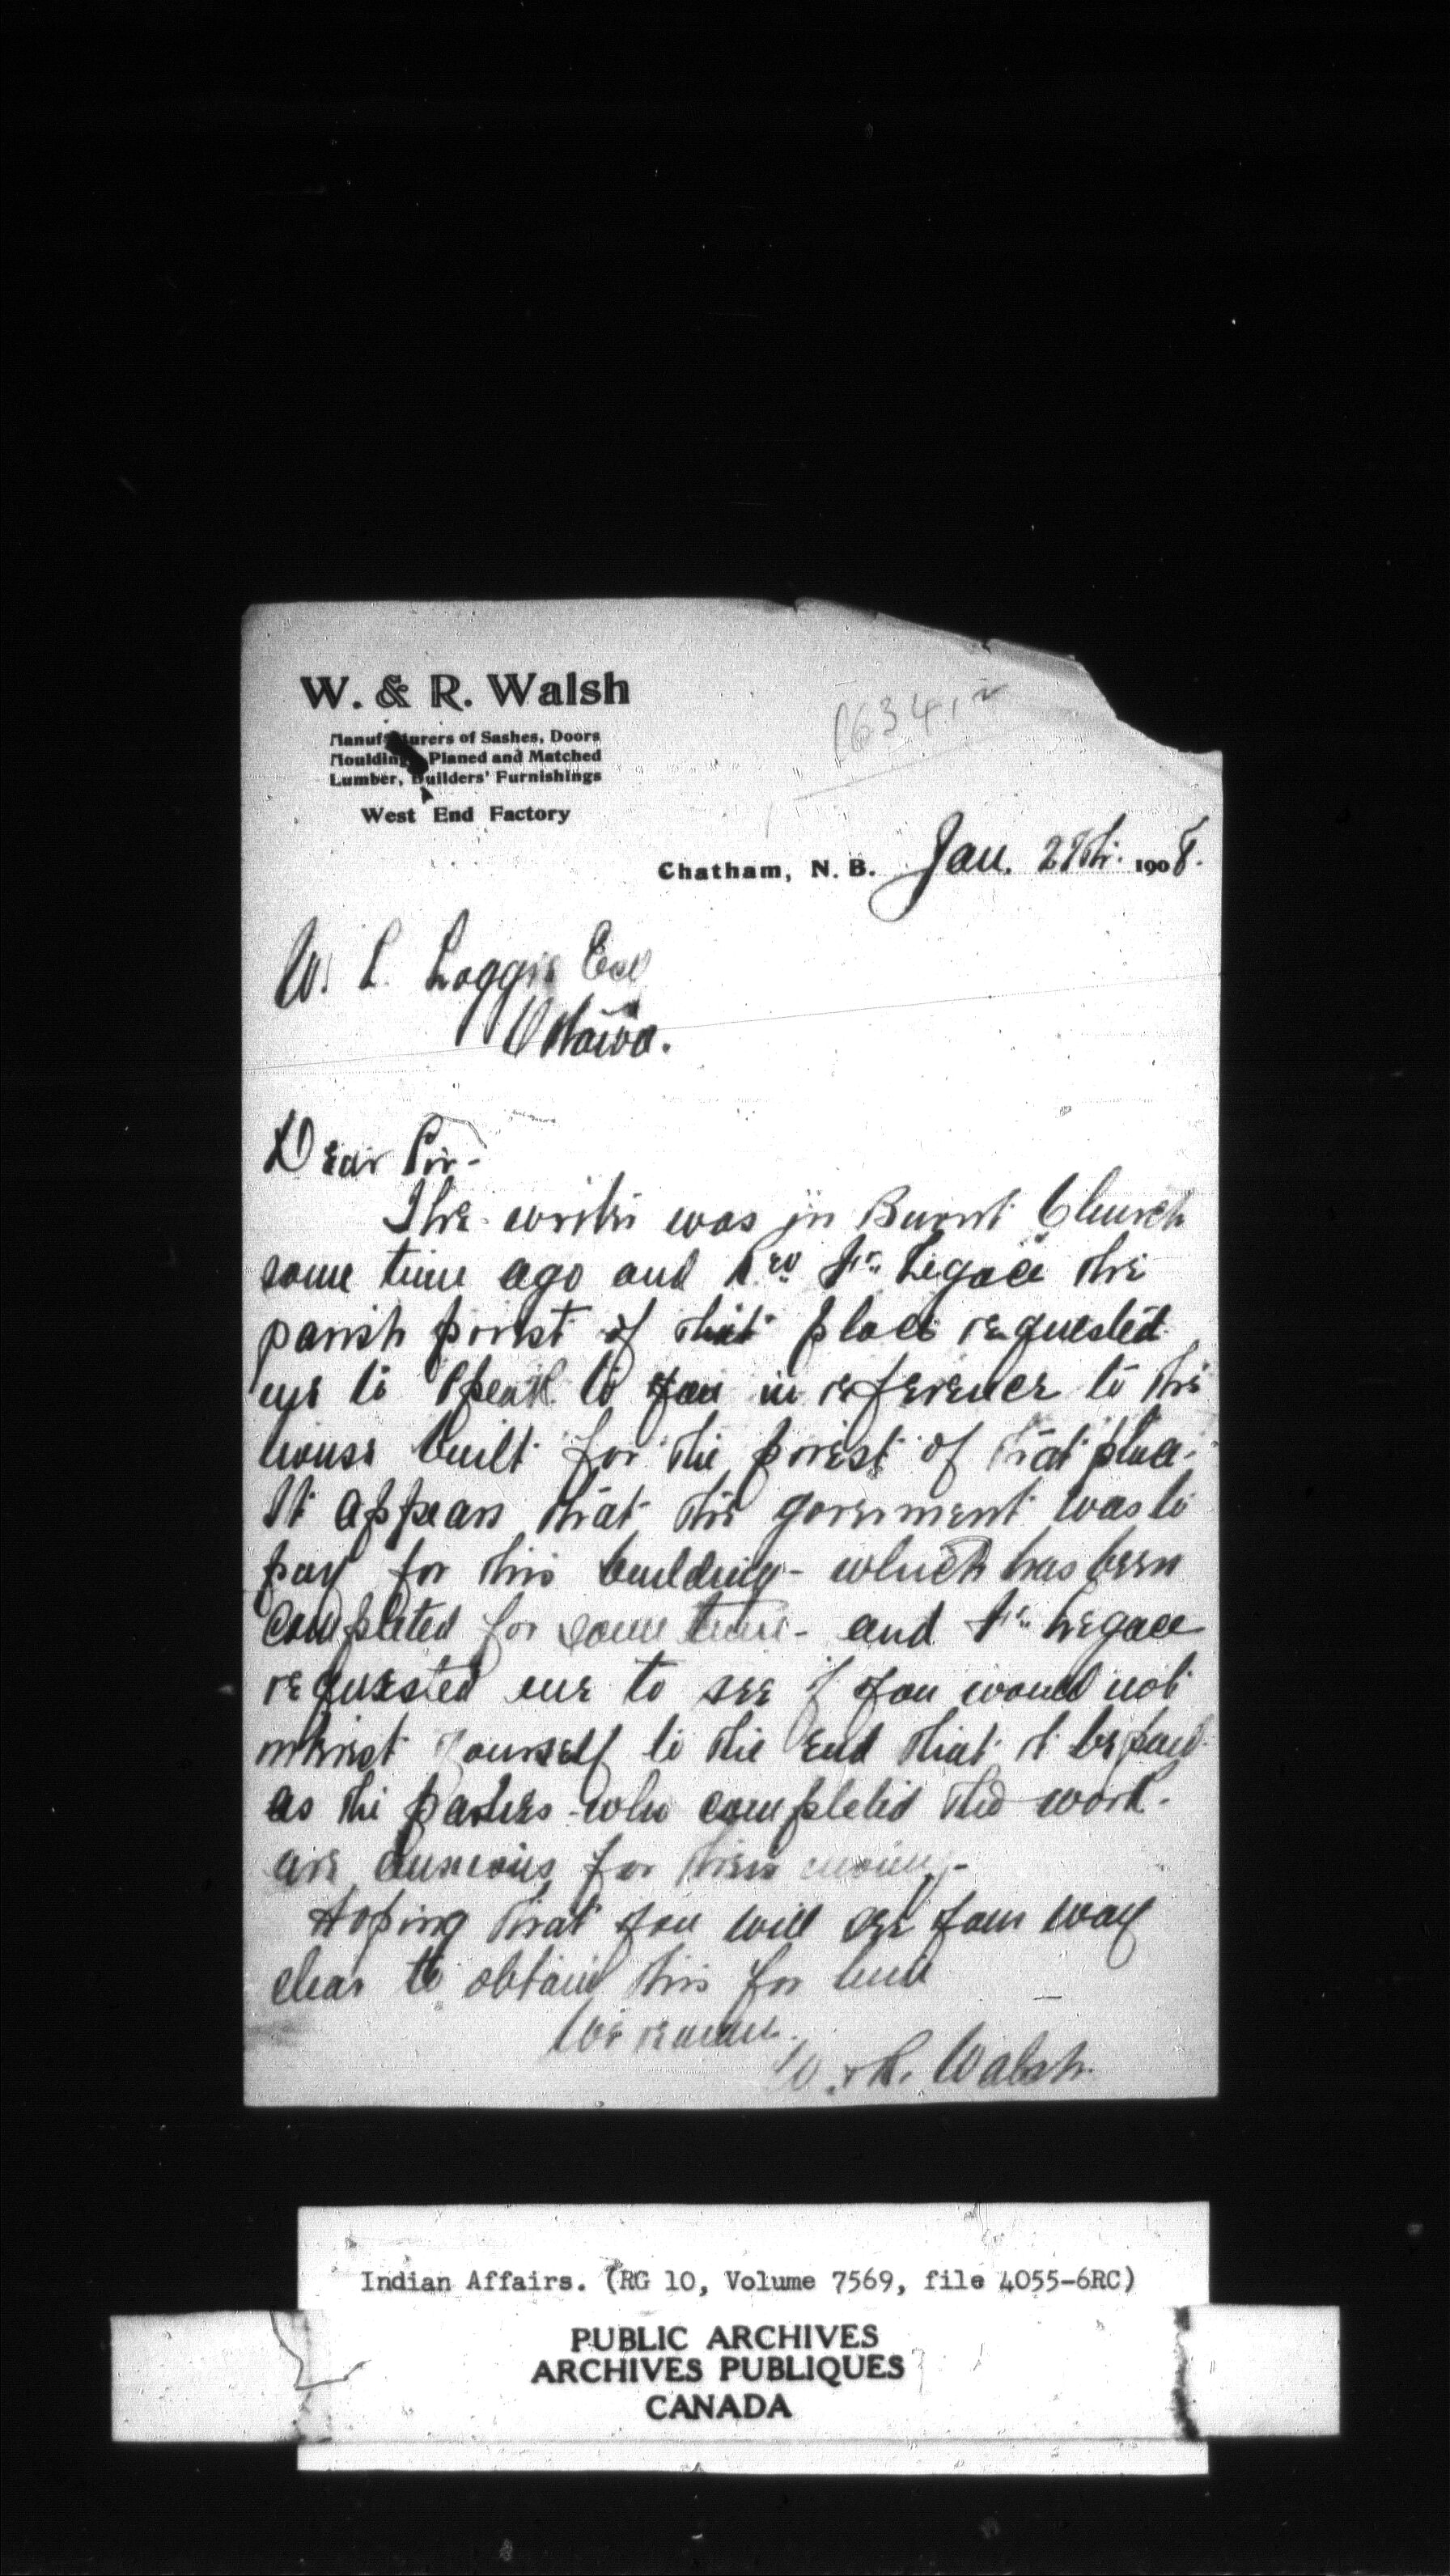 W. & R. Walsh
Manufacturers of Sashes, Doors
Mouldings, Planed and Matched
Lumber, Builders' Furnishings
West End Factory
Chatham, N. B. Jan. 1908.
W. L. Loggie Esq
Ottawa.
Dear Sir-
The writer was in Burnt Church
some time ago and Rev Fr. Legace the
parish priest of that place requested
me to speak to you in reference to the
house built for the priest of that place.
It appears that the goverment was to
pay for this building - which has been
completed for some time - and Fr. Legace
requested me to see if you would not
intrest yourself to the end that it be paid
as the parties who completed the work
are anxious for their money -
Hoping that you will see your way
clear to obtain this for him
We remain.
W. & R. Walsh.
Indian Affairs. (RG 10, Volume 7569, file 4055-6RC)
PUBLIC ARCHIVES
ARCHIVES PUBLIQUES
CANADA